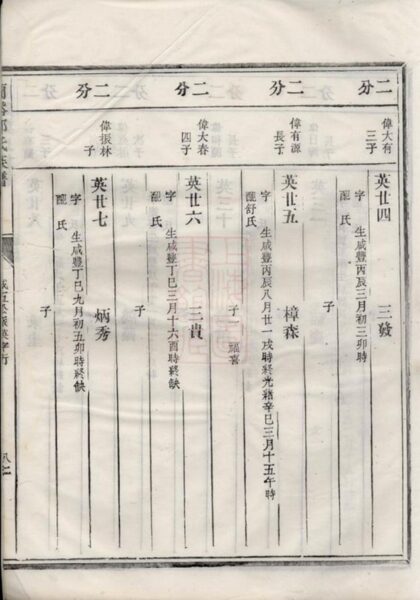 二分
偉大有
三子
英廿四
三發
字
生咸豐丙辰三月初三卯時
配
氏
子
二分
偉有源
長子
英廿五
樟森
字
生咸豐丙辰八月廿一戌時終光緒辛巳三月十五午時
配舒氏
子
福喜
二分
偉大春
四子
英廿六
三貴
字
生咸豐丁巳三月十六酉時終缺
配
氏
子
二分
偉振林
子
英廿七
炳秀
字
生咸豐丁巳九月初五卯時終缺
配
氏
子